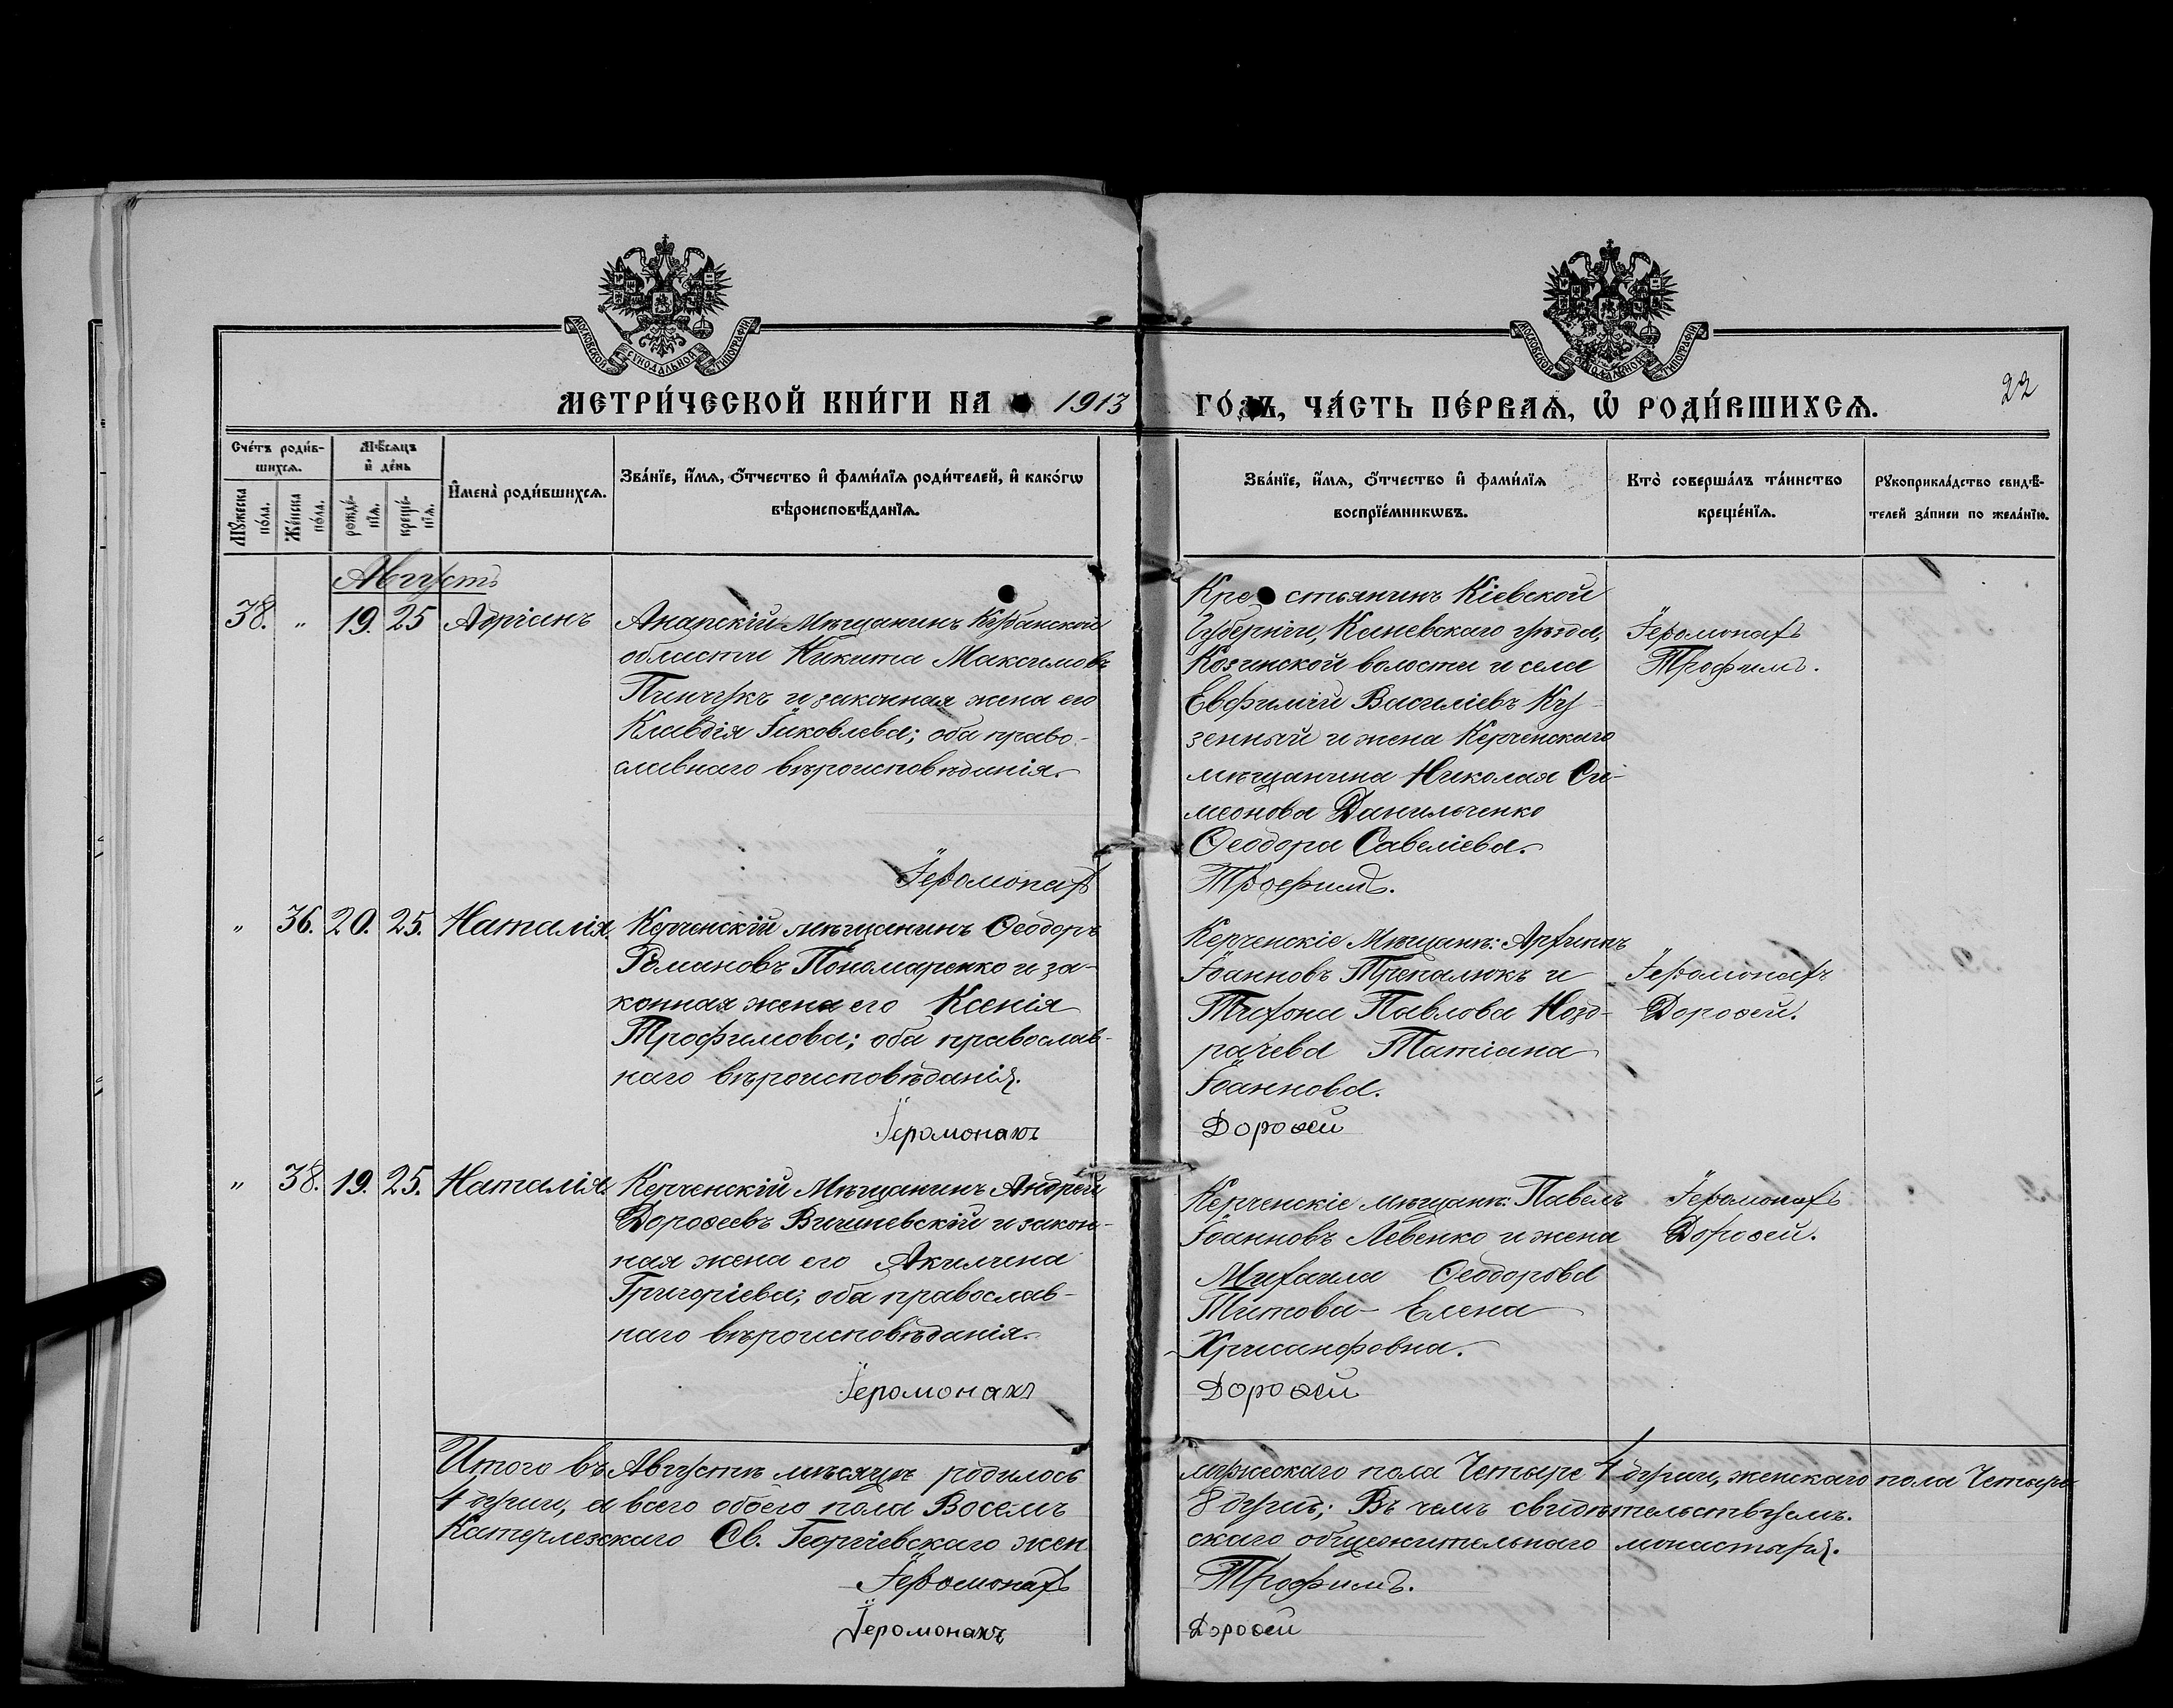 МОСКОВСКОЙ СѴНОДАЛЬНОЙ ТИПОГРАФІИ
МОСКОВСКОЙ СѴНОДАЛЬНОЙ ТИПОГРАФІИ
МЕТРИ́ЧЕСКОЙ КНИ́ГИ НА 1913 ГО́ДЪ, ЧА́СТЬ ПЕ́РВАѦ, Ѡ҆ РОДИ́ВШИХСѦ.
22
Сче́тъ роди́в-
шихсѧ.
Мꙋ́жеска
по́ла.
Же́нска
по́ла.
Мѣ́сѧцъ
и҆ де́нь
рожде́-
нїѧ.
креще́-
нїѧ.
И҆мена̀ роди́вшихсѧ.
Зва́нїе, и҆́мѧ, ѻ҆́тчество и҆ фами́лїѧ роди́телей, и҆ како́гѡ
вѣроисповѣ́данїѧ.
Зва́нїе, и҆́мѧ, ѻ҆́тчество и҆ фами́лїѧ
воспрїе́мникѡвъ.
Кто̀ соверша́лъ та́инство
креще́нїѧ.
Рꙋкоприкла́дство свидѣ́-
телей за́писи по жела́нїю.
Августъ
38. " 19. 25 Адріанъ
Анапскій мѣщанинъ Кубанской
области Никита Максимовъ
Пинчукъ и законная жена его
Клавдія Іаковлева; оба право-
славнаго вѣроисповѣданія.
Іеромонахъ
Крестьянинъ Кіевской
Губерніи, Каневскаго уѣзда,
Козинской волости и села
Евфимій Василіевъ Ку-
зенный и жена Керченскаго
мѣщанина Николая Си-
меонова Данильченко
Ѳеодора Савеліева.
Трофимъ.
Іеромонахъ
Трофимъ.
" 36. 20. 25. Наталія.
Керченскій мѣщанинъ Ѳеодоръ
Романовъ Пономаренко и за-
конная жена его Ксенія
Трофимова; оба православ-
наго вѣроисповѣданія.
Іеромонахъ
Керченскіе Мѣщане:
Іоанновъ и
Тихона Павлова Нозд-
рачева Татіана
Іоаннова.
Дороѳей
Іеромонахъ
Дороѳей.
" 38. 19. 25. Наталія.
Керченскій Мѣщанинъ Андрей
Дороѳеевъ Вичиневскій и закон-
ная жена его Акилина
Григоріева; оба православ-
наго вѣроисповѣданія.
Іеромонахъ
Керченскіе мѣщане: Павелъ
Іоанновъ Левенко и жена
Михаила Ѳеодорова
Титова- Елена
Хрисанфовна.
Дороѳей
Іеромонахъ
Дороѳей.
Итого въ Августѣ мѣсяцѣ родилось мужескаго пола Четыре 4 души, женскаго пола Четыре
4 души, а всего обоего пола Восемь 8 душъ; Въ чемъ свидѣтельствуемъ.
Катерлезскаго Св. Георгіевскаго женскаго общежительнаго монастыря.
Іеромонахъ Трофимъ.
Іеромонахъ Дороѳей